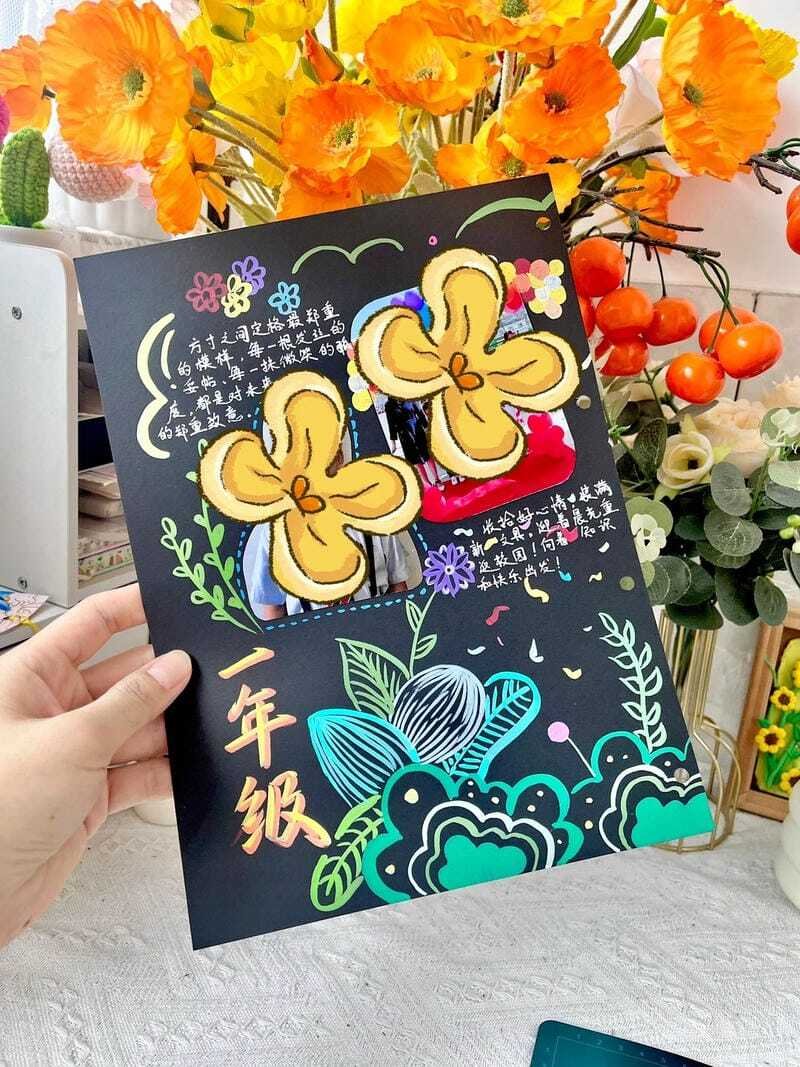 方寸之间定格最郑重
的模样，每一根发丝的
妥帖，每一抹微笑的弧
度，都是对未来
的郑重致意．
收拾好心情，装满
新文具，迎着晨光重
返校园！向着知识
和快乐出发！
一年级